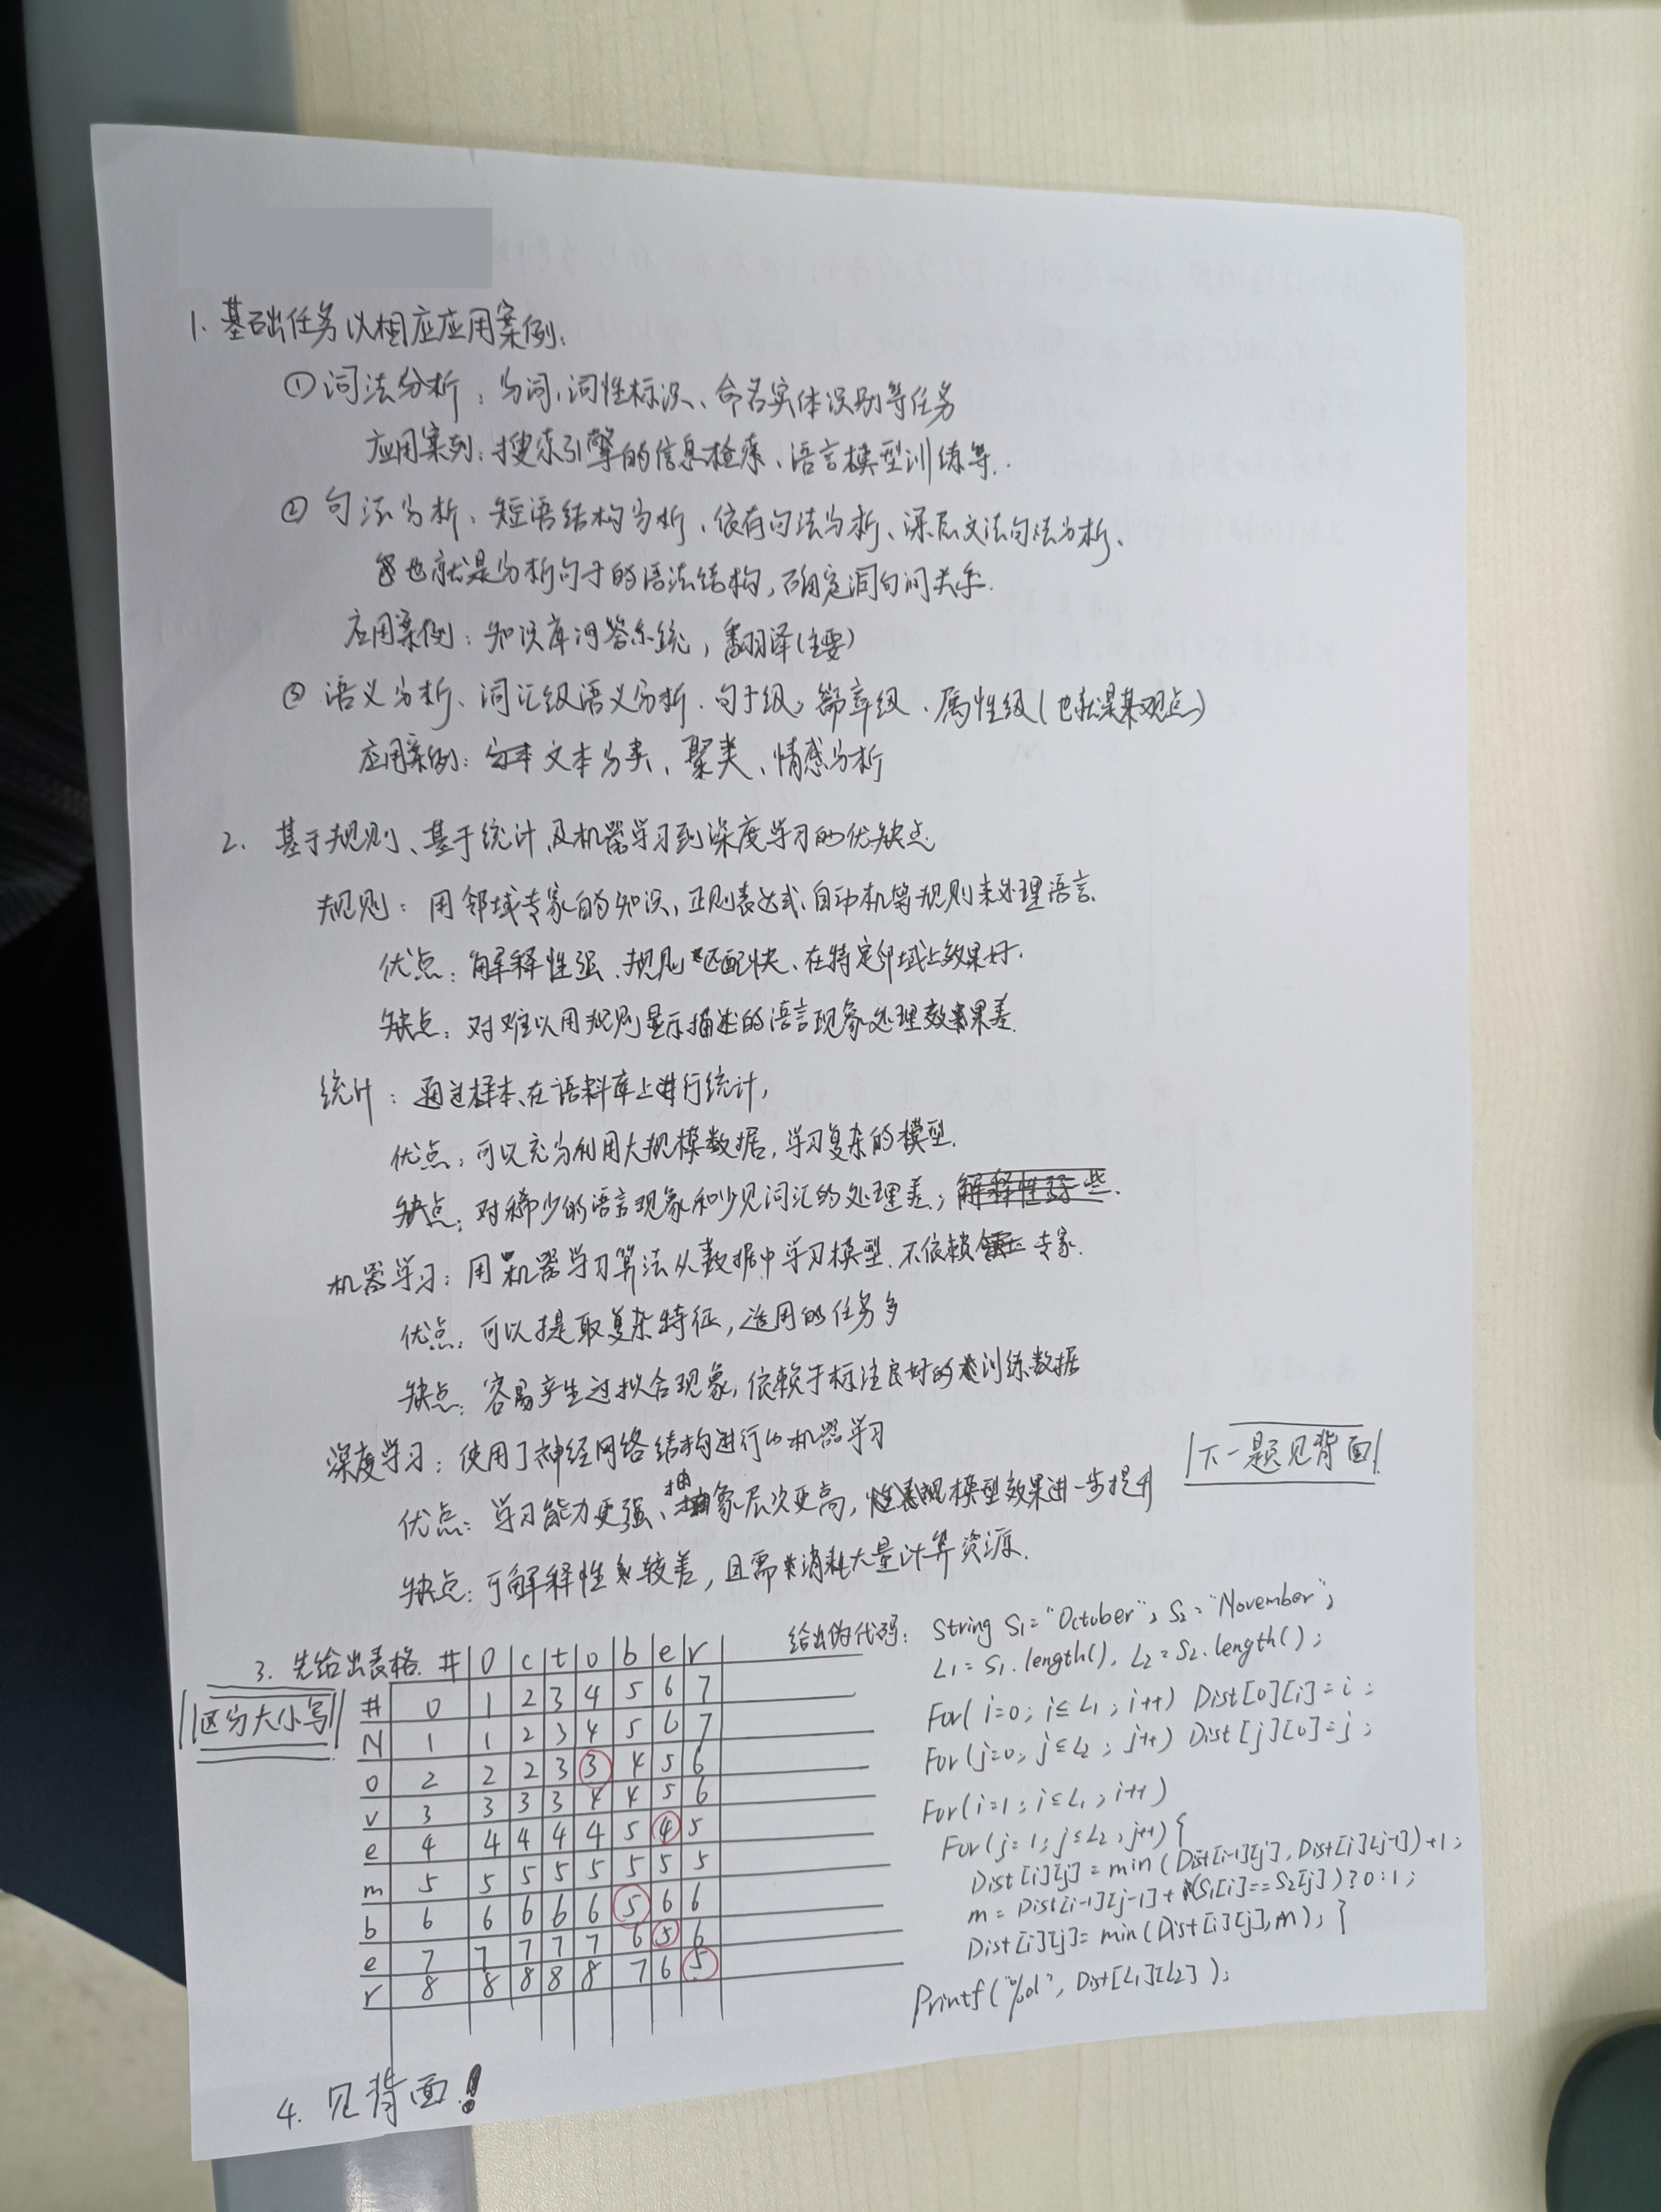 1. 基础任务以相应应用案例:
① 词法分析: 分词、词性标识、命名实体识别等任务
应用案列: 搜索引擎的信息检索、语言模型训练等.
② 句法分析、短语结构分析、依存句法分析、深层文法句法分析、
也就是分析句子的语法结构, 确定词句间关系.
应用案例: 知识库问答系统, 翻译(主要)
③ 语义分析、词汇级语义分析. 句子级, 篇章级、属性级(也就是某观点)
应用案例: 文本分类、聚类、情感分析
2. 基于规则、基于统计及机器学习到深度学习的优缺点.
规则: 用邻域专家的知识, 正则表达式、自动机等规则来处理语言.
优点: 解释性强、规则匹配快、在特定邻域上效果好.
缺点: 对难以用规则显示描述的语言现象处理效果差.
统计: 通过样本、在语料库上进行统计,
优点: 可以充分利用大规模数据, 学习复杂的模型.
缺点: 对稀少的语言现象和少见词汇的处理差; 解释性弱一些.
机器学习: 用机器学习算法从数据中学习模型. 不依赖专家.
优点: 可以提取复杂特征, 适用的任务多
缺点: 容易产生过拟合现象, 依赖于标注良好的训练数据
深度学习: 使用了神经网络结构进行的机器学习
下一题见背面
优点: 学习能力更强、抽象层次更高, 模型效果进一步提升
缺点: 可解释性较差, 且需消耗大量计算资源.
3. 先给出表格.
区分大小写
# O c t o b e r
# 0 1 2 3 4 5 6 7
N 1 1 2 3 4 5 6 7
o 2 2 2 3 3 4 5 6
v 3 3 3 3 4 4 5 6
e 4 4 4 4 4 5 4 5
m 5 5 5 5 5 5 5 5
b 6 6 6 6 6 5 6 6
e 7 7 7 7 7 6 5 6
r 8 8 8 8 8 7 6 5
给出伪代码: String S1="October"; S2="November";
L1=S1.length(), L2=S2.length();
For(i=0; i≤L1; i++) Dist[0][i]=i;
For(j=0; j≤L2; j++) Dist[j][0]=j;
For(i=1; i≤L1; i++)
For(j=1; j≤L2; j++){
Dist[i][j]=min(Dist[i-1][j], Dist[i][j-1])+1;
m=Dist[i-1][j-1]+(S1[i]==S2[j])?0:1;
Dist[i][j]=min(Dist[i][j],m); }
Printf("%d", Dist[L1][L2]);
4. 见背面!